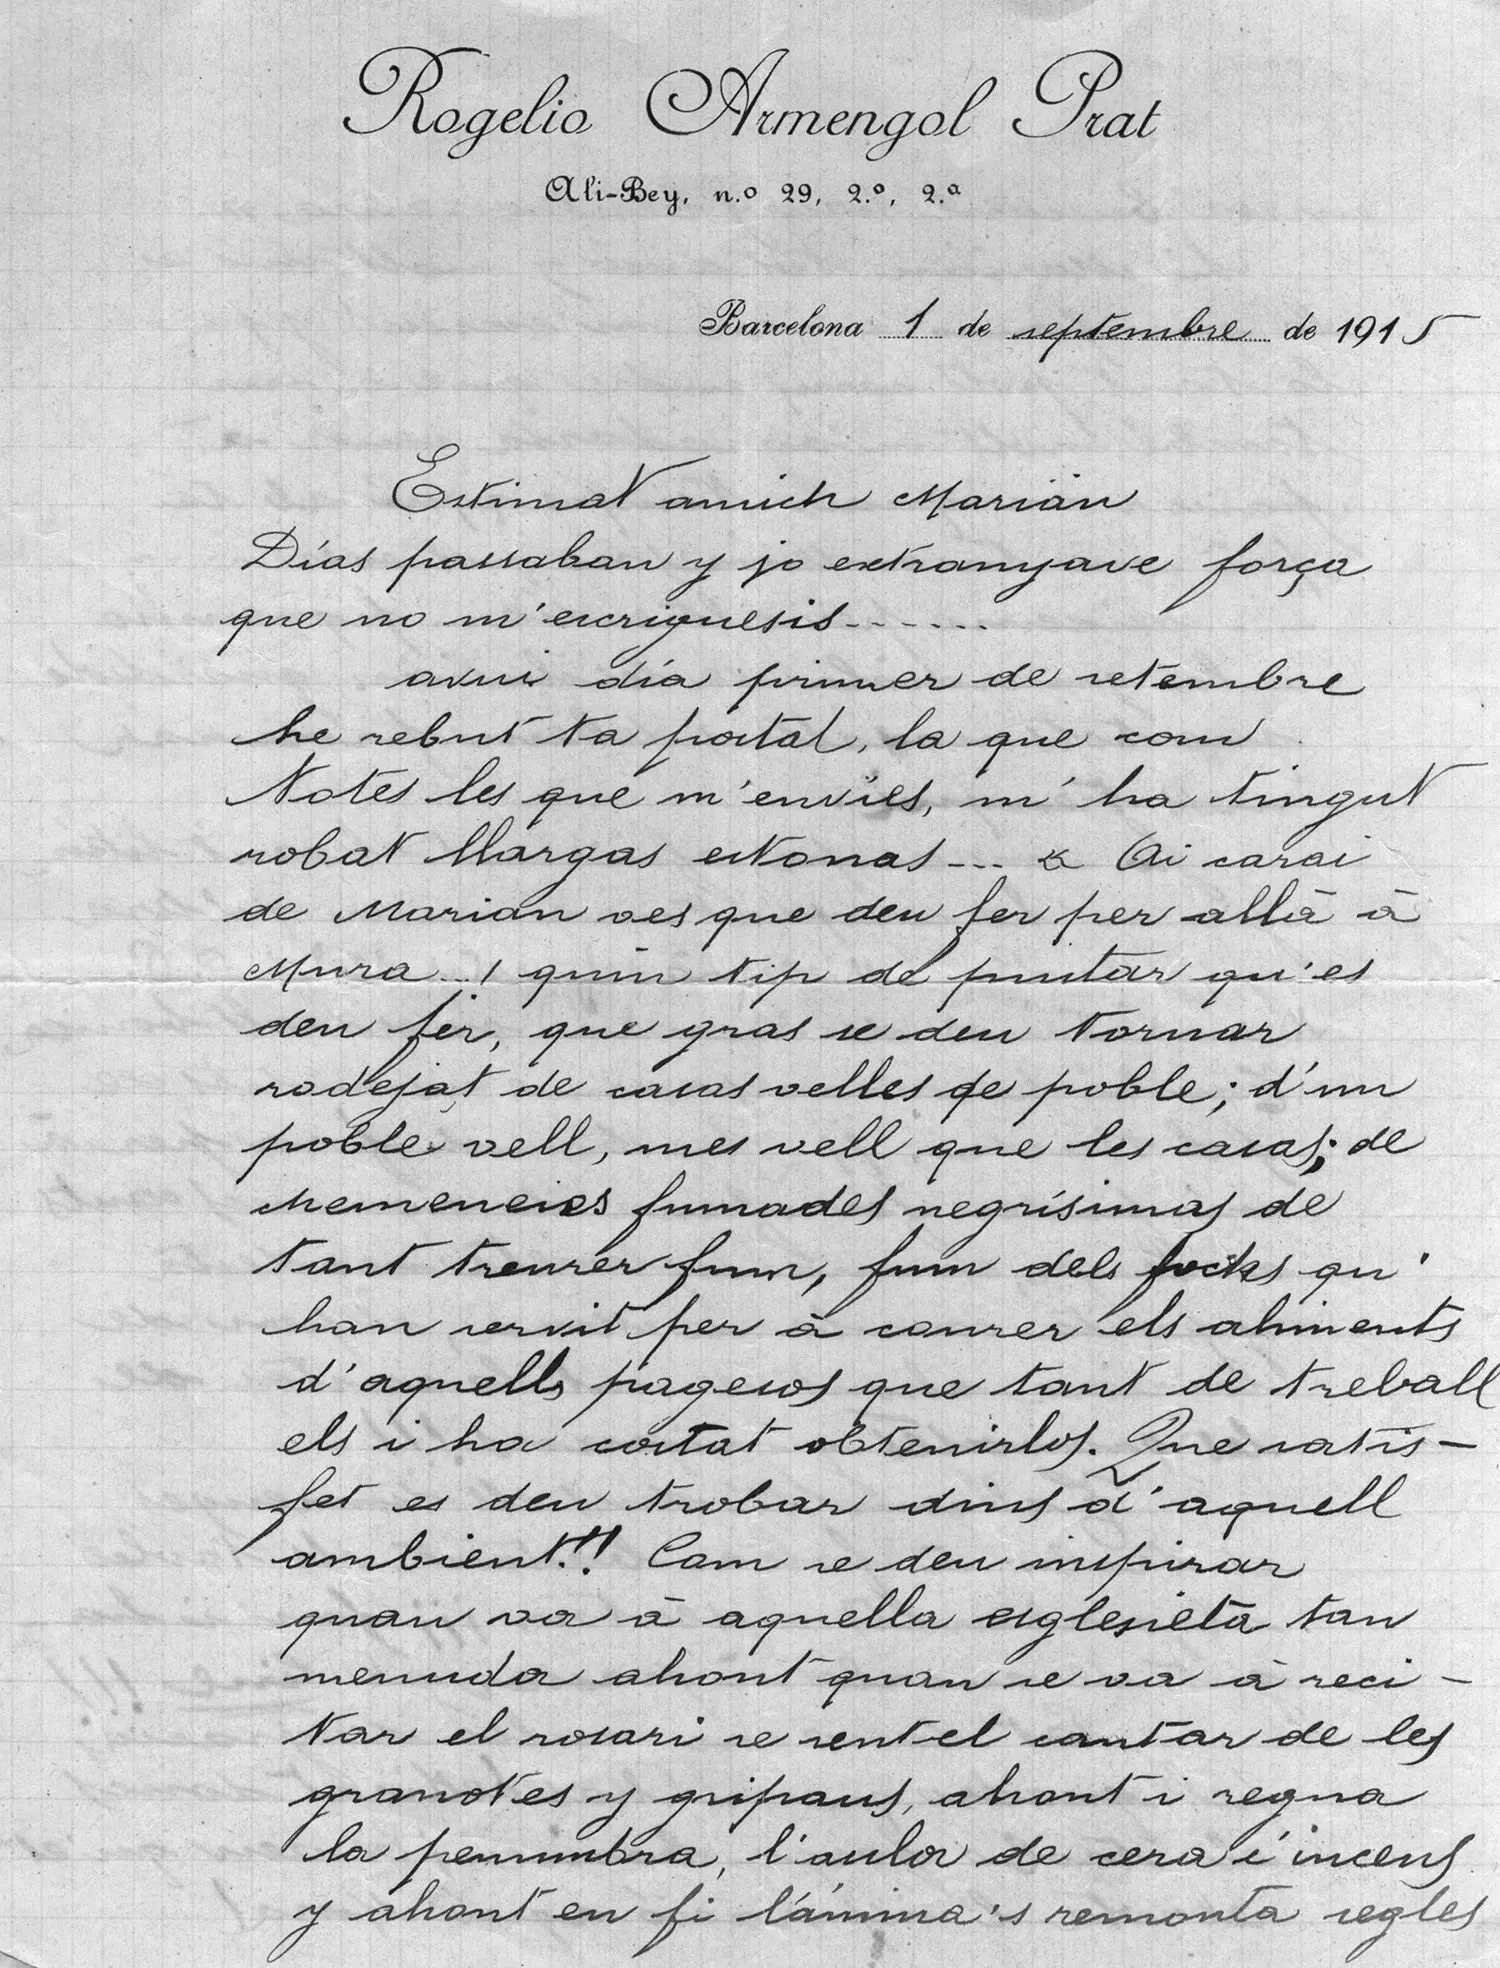 Rogelio Armengol Prat
Ali-Bey, n.o 29, 2.o, 2.a
Barcelona 1 de septembre de 1915
Estimat amich Marián
Días passaban y jo extranyave força
que no m'escriguesis......
avui día primer de setembre
he rebut ta postal, la que com
totes les que m'envíes, m'ha tingut
robat llargas estonas... Ai carai
de Marian ves que deu fer per allà à
Mura...! quin tip de pintar qu'es
deu fer, que gras se deu tornar
rodejat de casas velles de poble; d'un
poble vell, mes vell que les casas; de
xemeneies fumades negrísimas de
tant treurer fum, fum dels fochs qu'
han servit per à courer els aliments
d'aquells pagesos que tant de treball
els i ha costat obtenirlos. Que satis-
fet es deu trobar dins d'aquell
ambient!! Com se deu inspirar
quan va à aquella esglesieta tan
menuda ahont quan se va à reci-
tar el rosari se sent el cantar de les
granotes y gripaus, ahont i regna
la penumbra, l'aulor de cera i incens
y ahont en fi l'ánima's remonta segles